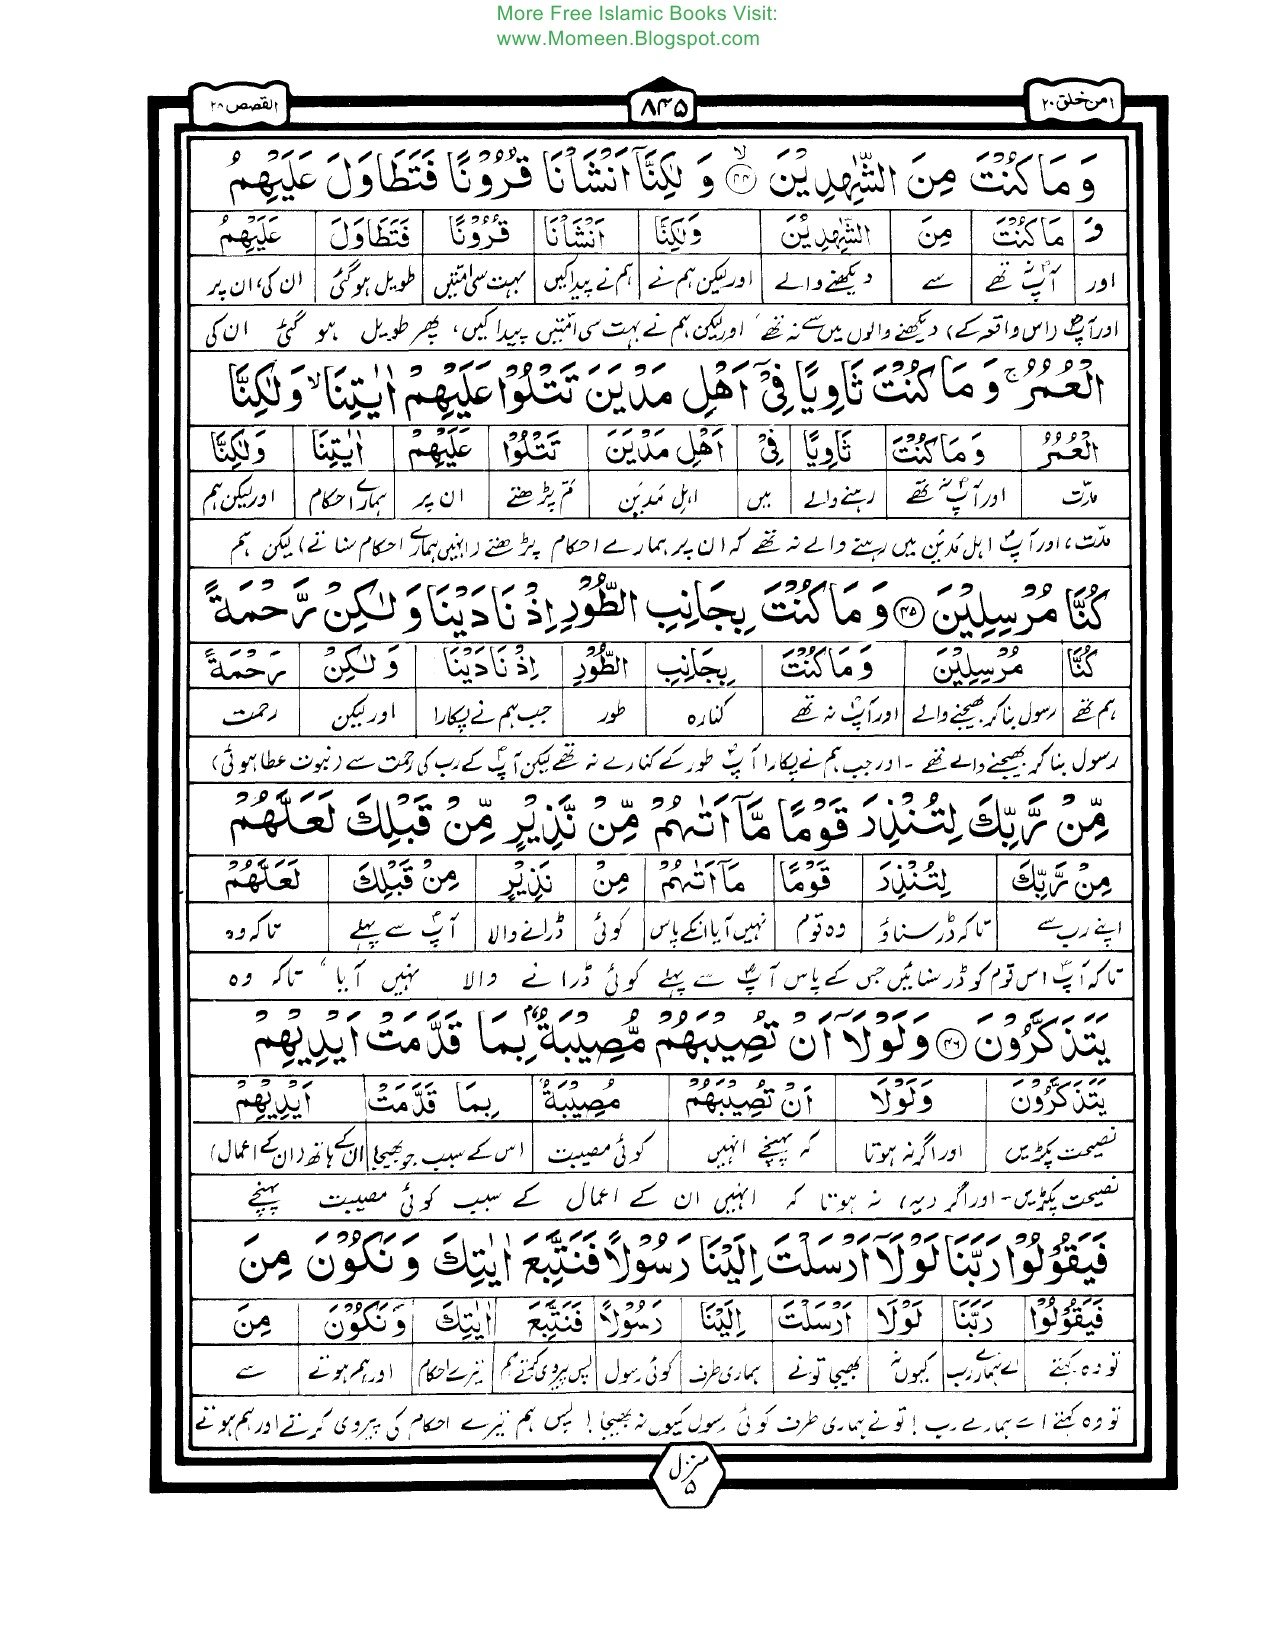 More Free Islamic Books Visit:
www.Momeen.Blogspot.com
امن خلق ۲۰ ۸۴۵ القصص ۲۸
وَمَا كُنْتَ مِنَ الشّٰهِدِيْنَ ۙ﴿۴۴﴾ وَلٰكِنَّاۤ اَنْشَاْنَا قُرُوْنًا فَتَطَاوَلَ عَلَيْهِمُ
وَ مَا كُنْتَ مِنَ الشّٰهِدِيْنَ وَلٰكِنَّا اَنْشَاْنَا قُرُوْنًا فَتَطَاوَلَ عَلَيْهِمُ
اور آپؐ نہ تھے سے دیکھنے والے اور لیکن ہم نے ہم نے پیدا کیں بہت سی امتیں طویل ہوگئی ان کی، ان پر
اور آپؐ (اس واقعہ کے) دیکھنے والوں میں سے نہ تھے، اور لیکن ہم نے بہت سی امتیں پیدا کیں، پھر طویل ہو گئی ان کی
الْعُمُرُ ۚ وَمَا كُنْتَ ثَاوِيًا فِيْۤ اَهْلِ مَدْيَنَ تَتْلُوْا عَلَيْهِمْ اٰيٰتِنَا ۙ وَلٰكِنَّا
الْعُمُرُ وَمَا كُنْتَ ثَاوِيًا فِيْ اَهْلِ مَدْيَنَ تَتْلُوْا عَلَيْهِمْ اٰيٰتِنَا وَلٰكِنَّا
مدّت اور آپؐ نہ تھے رہنے والے میں اہل مدین تم پڑھتے ان پر ہمارے احکام اور لیکن ہم
مدّت، اور آپؐ اہل مدین میں رہنے والے نہ تھے کہ ان پر ہمارے احکام پڑھتے (انہیں ہمارے احکام سناتے) لیکن ہم
كُنَّا مُرْسِلِيْنَ ﴿۴۵﴾ وَمَا كُنْتَ بِجَانِبِ الطُّوْرِ اِذْ نَادَيْنَا وَلٰكِنْ رَّحْمَةً
كُنَّا مُرْسِلِيْنَ وَمَا كُنْتَ بِجَانِبِ الطُّوْرِ اِذْ نَادَيْنَا وَلٰكِنْ رَحْمَةً
ہم تھے رسول بنا کر بھیجنے والے اور آپؐ نہ تھے کنارہ طور جب ہم نے پکارا اور لیکن رحمت
رسول بنا کر بھیجنے والے تھے۔ اور جب ہم نے پکارا آپؐ طور کے کنارے نہ تھے لیکن آپؐ کے رب کی رحمت سے (نبوت عطا ہوئی)
مِّنْ رَّبِّكَ لِتُنْذِرَ قَوْمًا مَّاۤ اَتٰىهُمْ مِّنْ نَّذِيْرٍ مِّنْ قَبْلِكَ لَعَلَّهُمْ
مِنْ رَّبِّكَ لِتُنْذِرَ قَوْمًا مَاۤ اَتٰىهُمْ مِنْ نَذِيْرٍ مِنْ قَبْلِكَ لَعَلَّهُمْ
اپنے رب سے تاکہ ڈر سناؤ وہ قوم نہیں آیا انکے پاس کوئی ڈرانے والا آپؐ سے پہلے تاکہ وہ
تاکہ آپؐ اس قوم کو ڈر سنائیں جس کے پاس آپؐ سے پہلے کوئی ڈرانے والا نہیں آیا، تاکہ وہ
يَتَذَكَّرُوْنَ ﴿۴۶﴾ وَلَوْلَاۤ اَنْ تُصِيْبَهُمْ مُّصِيْبَةٌۢ بِمَا قَدَّمَتْ اَيْدِيْهِمْ
يَتَذَكَّرُوْنَ وَلَوْلَا اَنْ تُصِيْبَهُمْ مُصِيْبَةٌ بِمَا قَدَّمَتْ اَيْدِيْهِمْ
نصیحت پکڑیں اور اگر نہ ہوتا کہ پہنچے انہیں کوئی مصیبت اس کے سبب جو بھیجا ان کے ہاتھ (ان کے اعمال)
نصیحت پکڑیں۔ اور اگر (یہ) نہ ہوتا کہ انہیں ان کے اعمال کے سبب کوئی مصیبت پہنچے
فَيَقُوْلُوْا رَبَّنَا لَوْلَاۤ اَرْسَلْتَ اِلَيْنَا رَسُوْلًا فَنَتَّبِعَ اٰيٰتِكَ وَنَكُوْنَ مِنَ
فَيَقُوْلُوْا رَبَّنَا لَوْلَا اَرْسَلْتَ اِلَيْنَا رَسُوْلًا فَنَتَّبِعَ اٰيٰتِكَ وَنَكُوْنَ مِنَ
تو وہ کہتے اے ہمارے رب کیوں نہ بھیجا تو نے ہماری طرف کوئی رسول پس پیروی کرتے ہم تیرے احکام اور ہم ہوتے سے
تو وہ کہتے اے ہمارے رب! تو نے ہماری طرف کوئی رسول کیوں نہ بھیجا! پس ہم تیرے احکام کی پیروی کرتے اور ہم ہوتے
منزل ۵